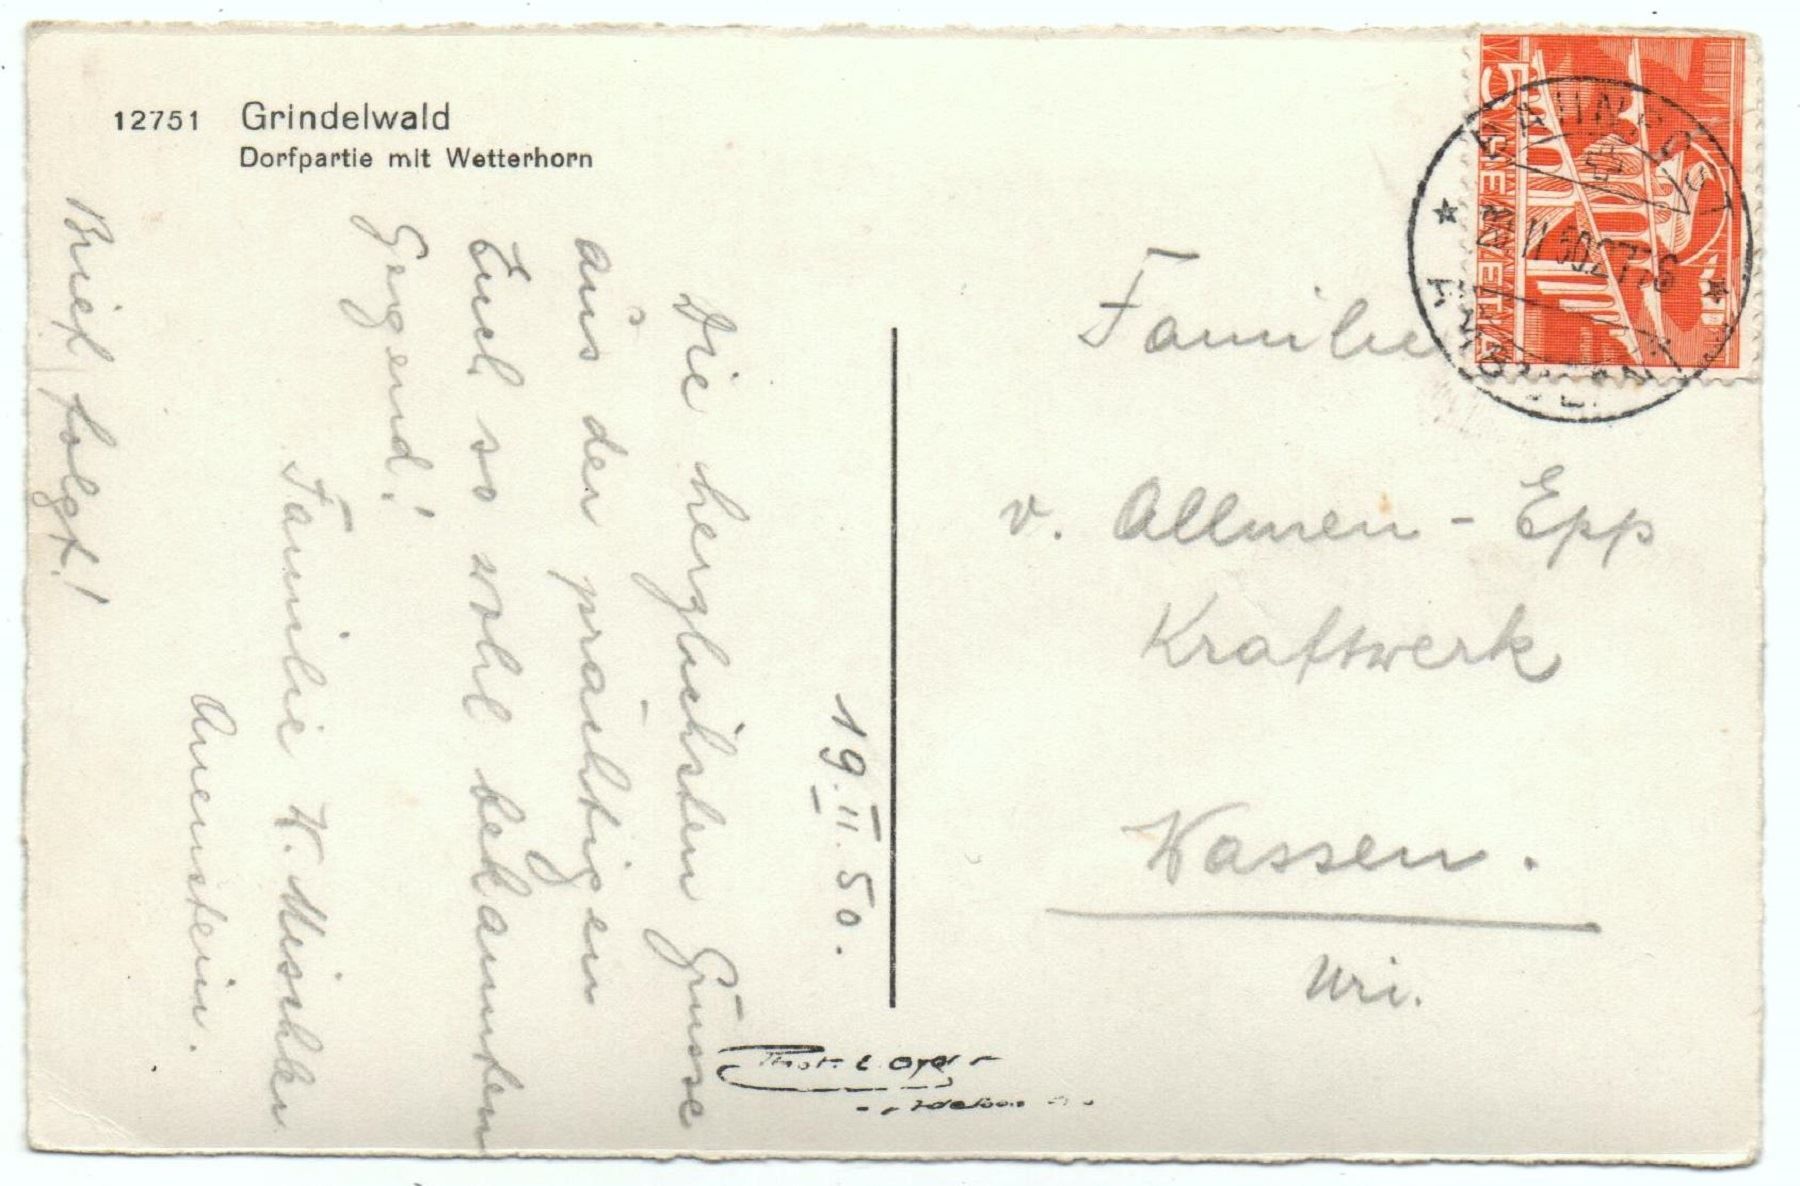 12751 Grindelwald
Dorfpartie mit Wetterhorn
19.II.50.
Die herzlichsten Grüsse
aus der prächtigen
Euch so wohl bekannten
Gegend!
Familie K.
Amsteg
Brief folgt!
Familie
v. Allmen - Epp
Kraftwerk
Wassen.
Uri.
5
HELVETIA
BAHNPOST
AMBULANT